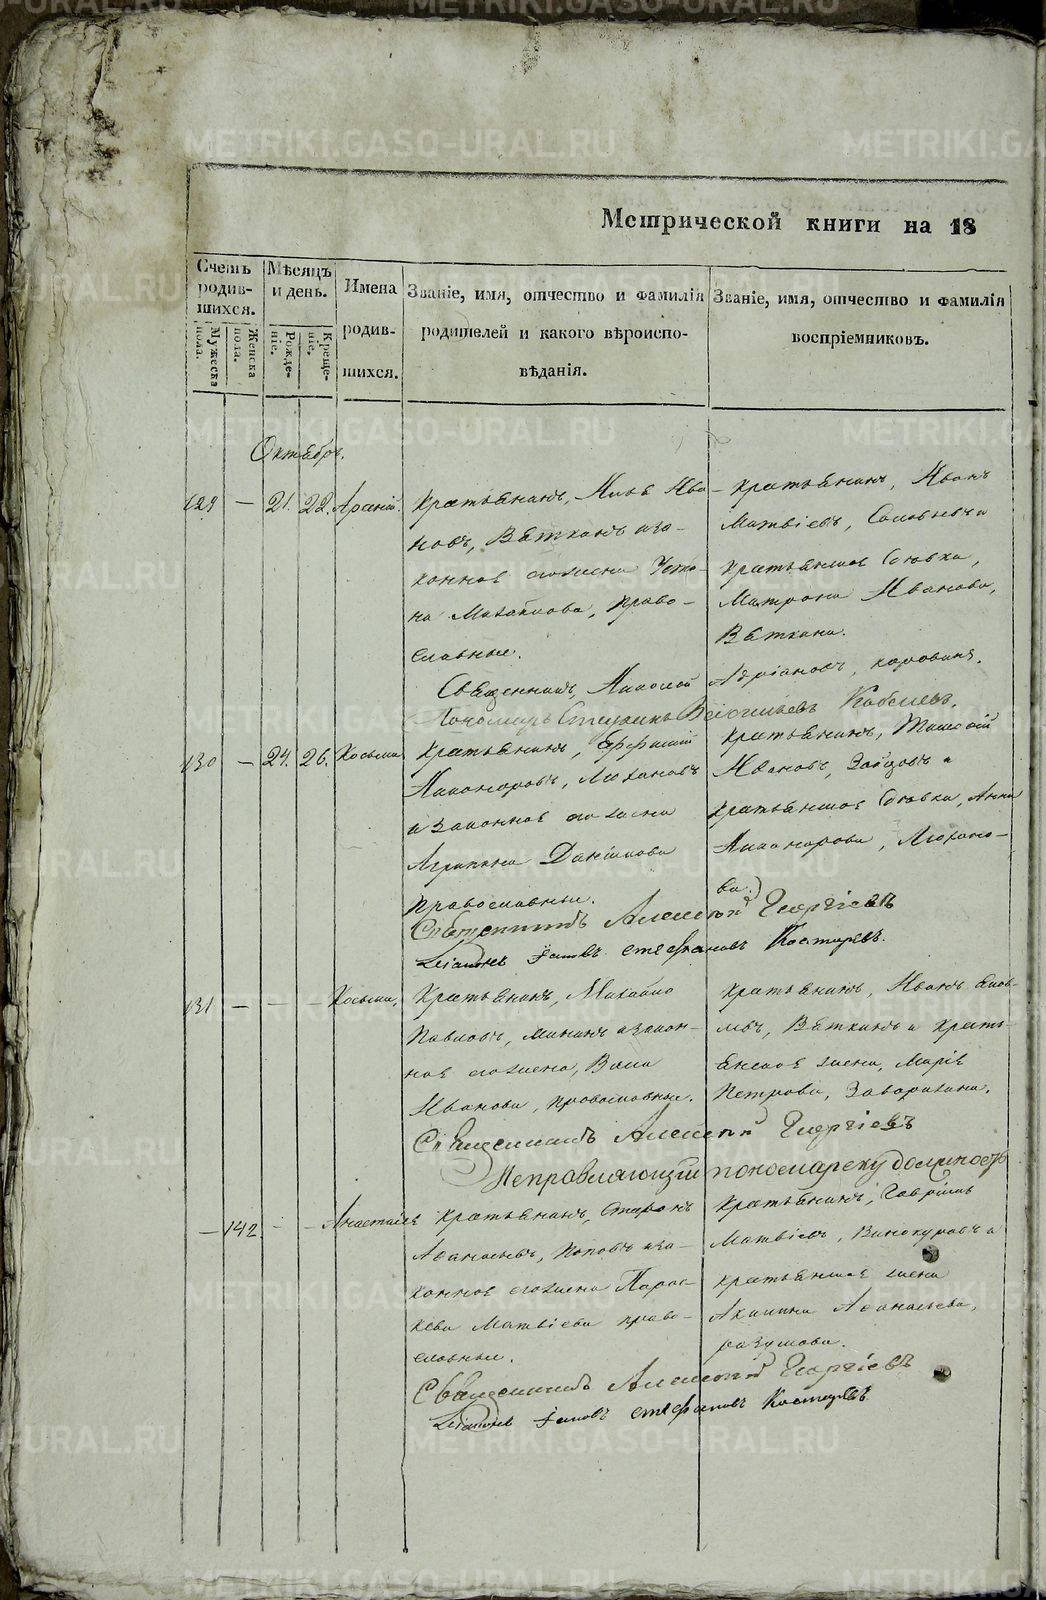 Метрической книги на 18
Счетъ родившихся.
Мужеска пола.
Женска пола.
Мѣсяцъ и день.
Рожденіе.
Крещеніе.
Имена родившихся.
Званіе, имя, отчество и фамилія
родителей и какого вѣроиспо-
вѣданія.
Званіе, имя, отчество и фамилія
воспріемниковъ.
Октябрь.
129 — 21. 22. Арсеній.
Крестьянинъ, Ива-
новъ, Вяткинъ и за-
конная его жена Устинья
Михайлова, право-
славные.
Крестьянинъ, Иванъ
Матвіевъ, Соловьевъ и
крестьянская дѣвка,
Матрона Иванова,
Вяткина.
Священникъ, Николай Адріановъ, Коровинъ.
Пономарь Васильевъ
130 — 24. 26. Косьма.
Крестьянинъ, Ефимій
Никоноровъ, Люхановъ
и законная его жена
Агрипина Даніилова
православные.
Крестьянинъ, Тимофій
Ивановъ, Зайцовъ и
крестьянская дѣвка, Анна
Никонорова, Люхано-
ва.
Священникъ Алексѣй Георгіевъ
Стефановъ Костаревъ.
131 — — — Косьма.
Крестьянинъ, Михайло
Павловъ, Мининъ и закон-
ная его жена,
Иванова, православные.
Крестьянинъ, Иванъ Яков-
левъ, Вяткинъ и кресть-
янская жена, Марія
Петрова, Заворохина.
Священникъ Алексѣй Георгіевъ
Исправляющій пономарску должность
— 142 — — Анастасія
Крестьянинъ,
Афанасьевъ, Поповъ и за-
конная его жена Парас-
кева Матвіева право-
славные.
Крестьянинъ, Гавріилъ
Матвіевъ, Винокуровъ и
крестьянская жена
Акилина Афанасьева,
разумова.
Священникъ Алексѣй Георгіевъ
Стефановъ Костаревъ
METRIKI.GASO-URAL.RU